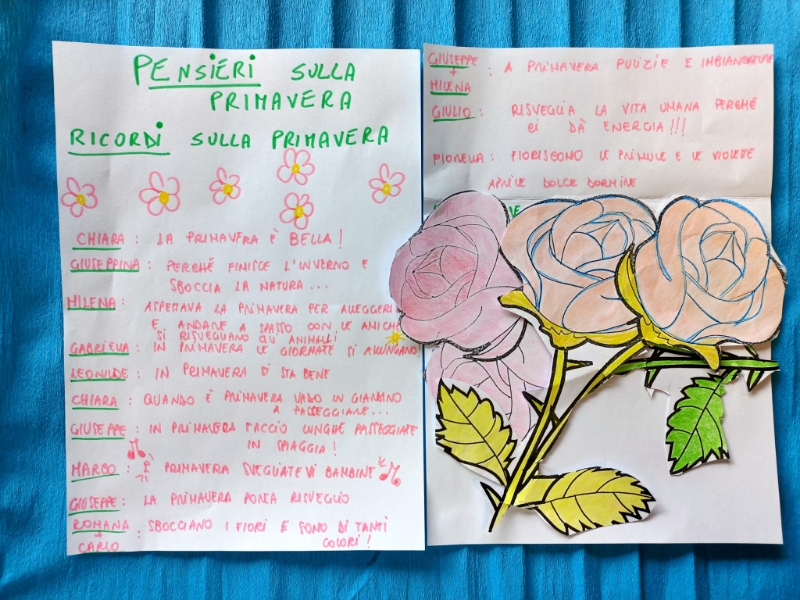 PENSIERI SULLA
PRIMAVERA
RICORDI SULLA PRIMAVERA
CHIARA: LA PRIMAVERA È BELLA!
GIUSEPPINA: PERCHÉ FINISCE L'INVERNO E
SBOCCIA LA NATURA...
MILENA: ASPETTAVA LA PRIMAVERA PER ALLEGGERI
E ANDARE A SPASSO CON LE AMICHE
SI RISVEGLIANO GLI ANIMALI
GABRIELLA: IN PRIMAVERA LE GIORNATE SI ALLUNGANO
LEONILDE: IN PRIMAVERA SI STA BENE
CHIARA: QUANDO È PRIMAVERA VADO IN GIARDINO
A PASSEGGIARE...
GIUSEPPE: IN PRIMAVERA FACCIO LUNGHE PASSEGGIATE
IN SPIAGGIA!
MARCO: È PRIMAVERA SVEGLIATEVI BAMBINE
GIUSEPPE: LA PRIMAVERA PORTA RISVEGLIO
ROMANA: SBOCCIANO I FIORI E SONO DI TANTI
+
CARLO COLORI!
GIUSEPPE: A PRIMAVERA PULIZIE E IMBIANCATURE
+
MILENA
GIULIO: RISVEGLIA LA VITA UMANA PERCHÉ
CI DÀ ENERGIA!!!
FIORELLA: FIORISCONO LE PRIMULE E LE VIOLETTE
APRILE DOLCE DORMIRE